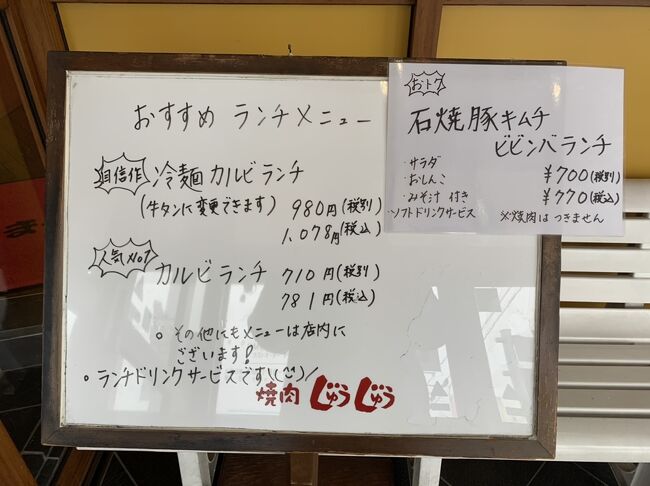 おすすめ ランチメニュー
自信作
冷麺カルビランチ
(牛タンに変更できます) 980円(税別)
1,078円(税込)
人気No1
カルビランチ 710円(税別)
781円(税込)
○ その他にもメニューは店内に
ございます!
○ ランチドリンクサービスです\(^^)/
焼肉 じゅうじゅう
おトク
石焼豚キムチ
ビビンバランチ
・サラダ ¥700(税別)
・おしんこ
・みそ汁 付き ¥770(税込)
・ソフトドリンクサービス ※焼肉はつきません